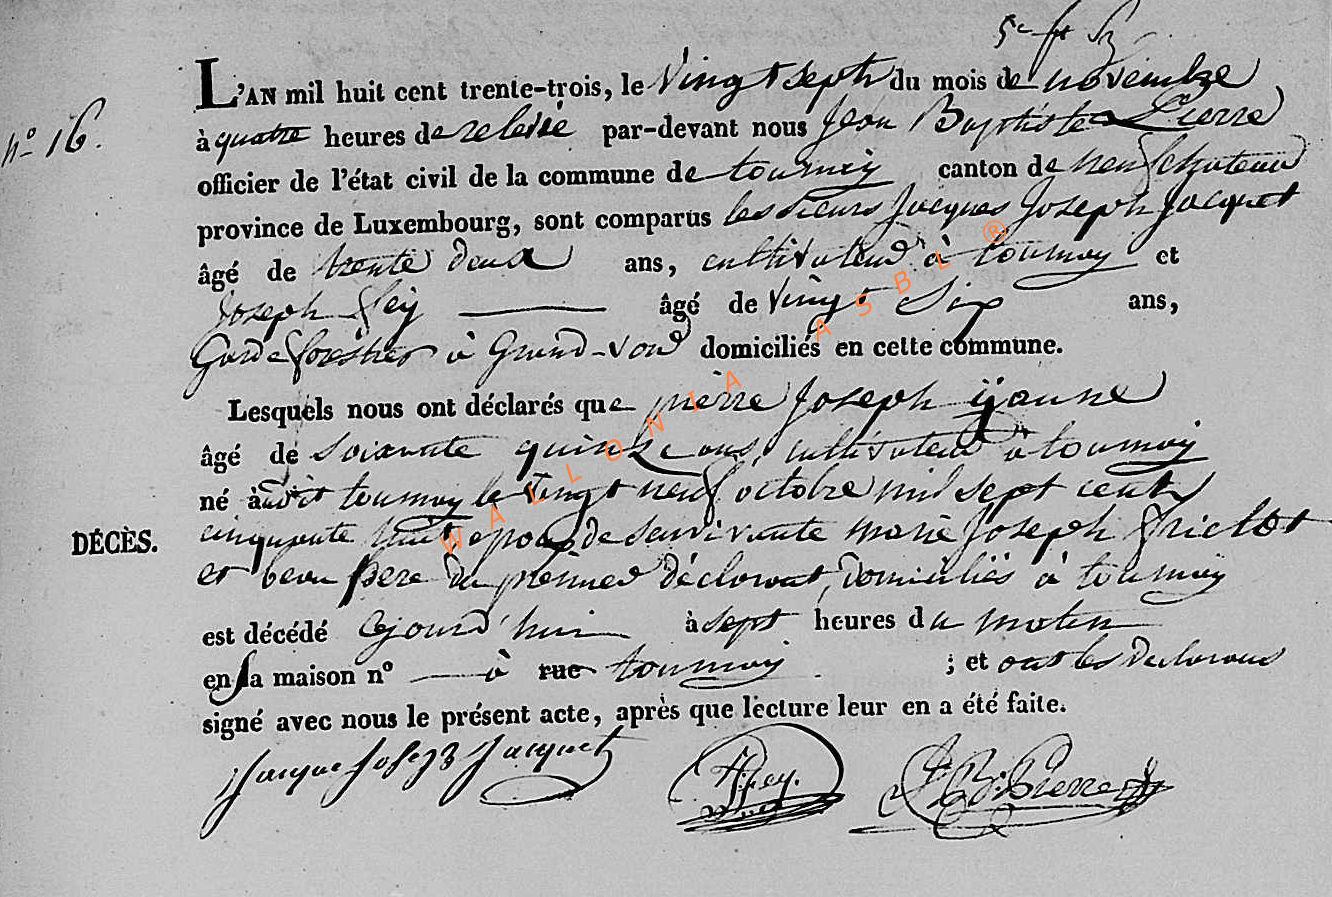 nº 16.
L'AN mil huit cent trente-trois, le Vingt sept du mois de novembre
à quatre heures de relevée par-devant nous Jean Baptiste Pierre
officier de l'état civil de la commune de tournay canton de neufchateau
province de Luxembourg, sont comparus les sieurs Jacques Joseph Jacquet
âgé de trente deux ans, cultivateur à tournay et
Joseph Fey âgé de Vingt Six ans,
Garde forestier à Grand-Voir domiciliés en cette commune.
Lesquels nous ont déclarés que pièrre Joseph
âgé de soixante quinze ans, cultivateur à tournay
né audit tournay le Vingt neuf octobre mil sept cent
cinquante huit epoux de survivante marie Joseph
et beau pere du premier déclarant, domiciliés à tournay
DÉCÈS.
est décédé cejourd'hui à sept heures du matin
en sa maison nº à rue tournay ; et ont les declarans
signé avec nous le présent acte, après que lecture leur en a été faite.
Jacque Joseph Jacquet
Fey.
J. B. Pierre
WALLONIA ASBL ®